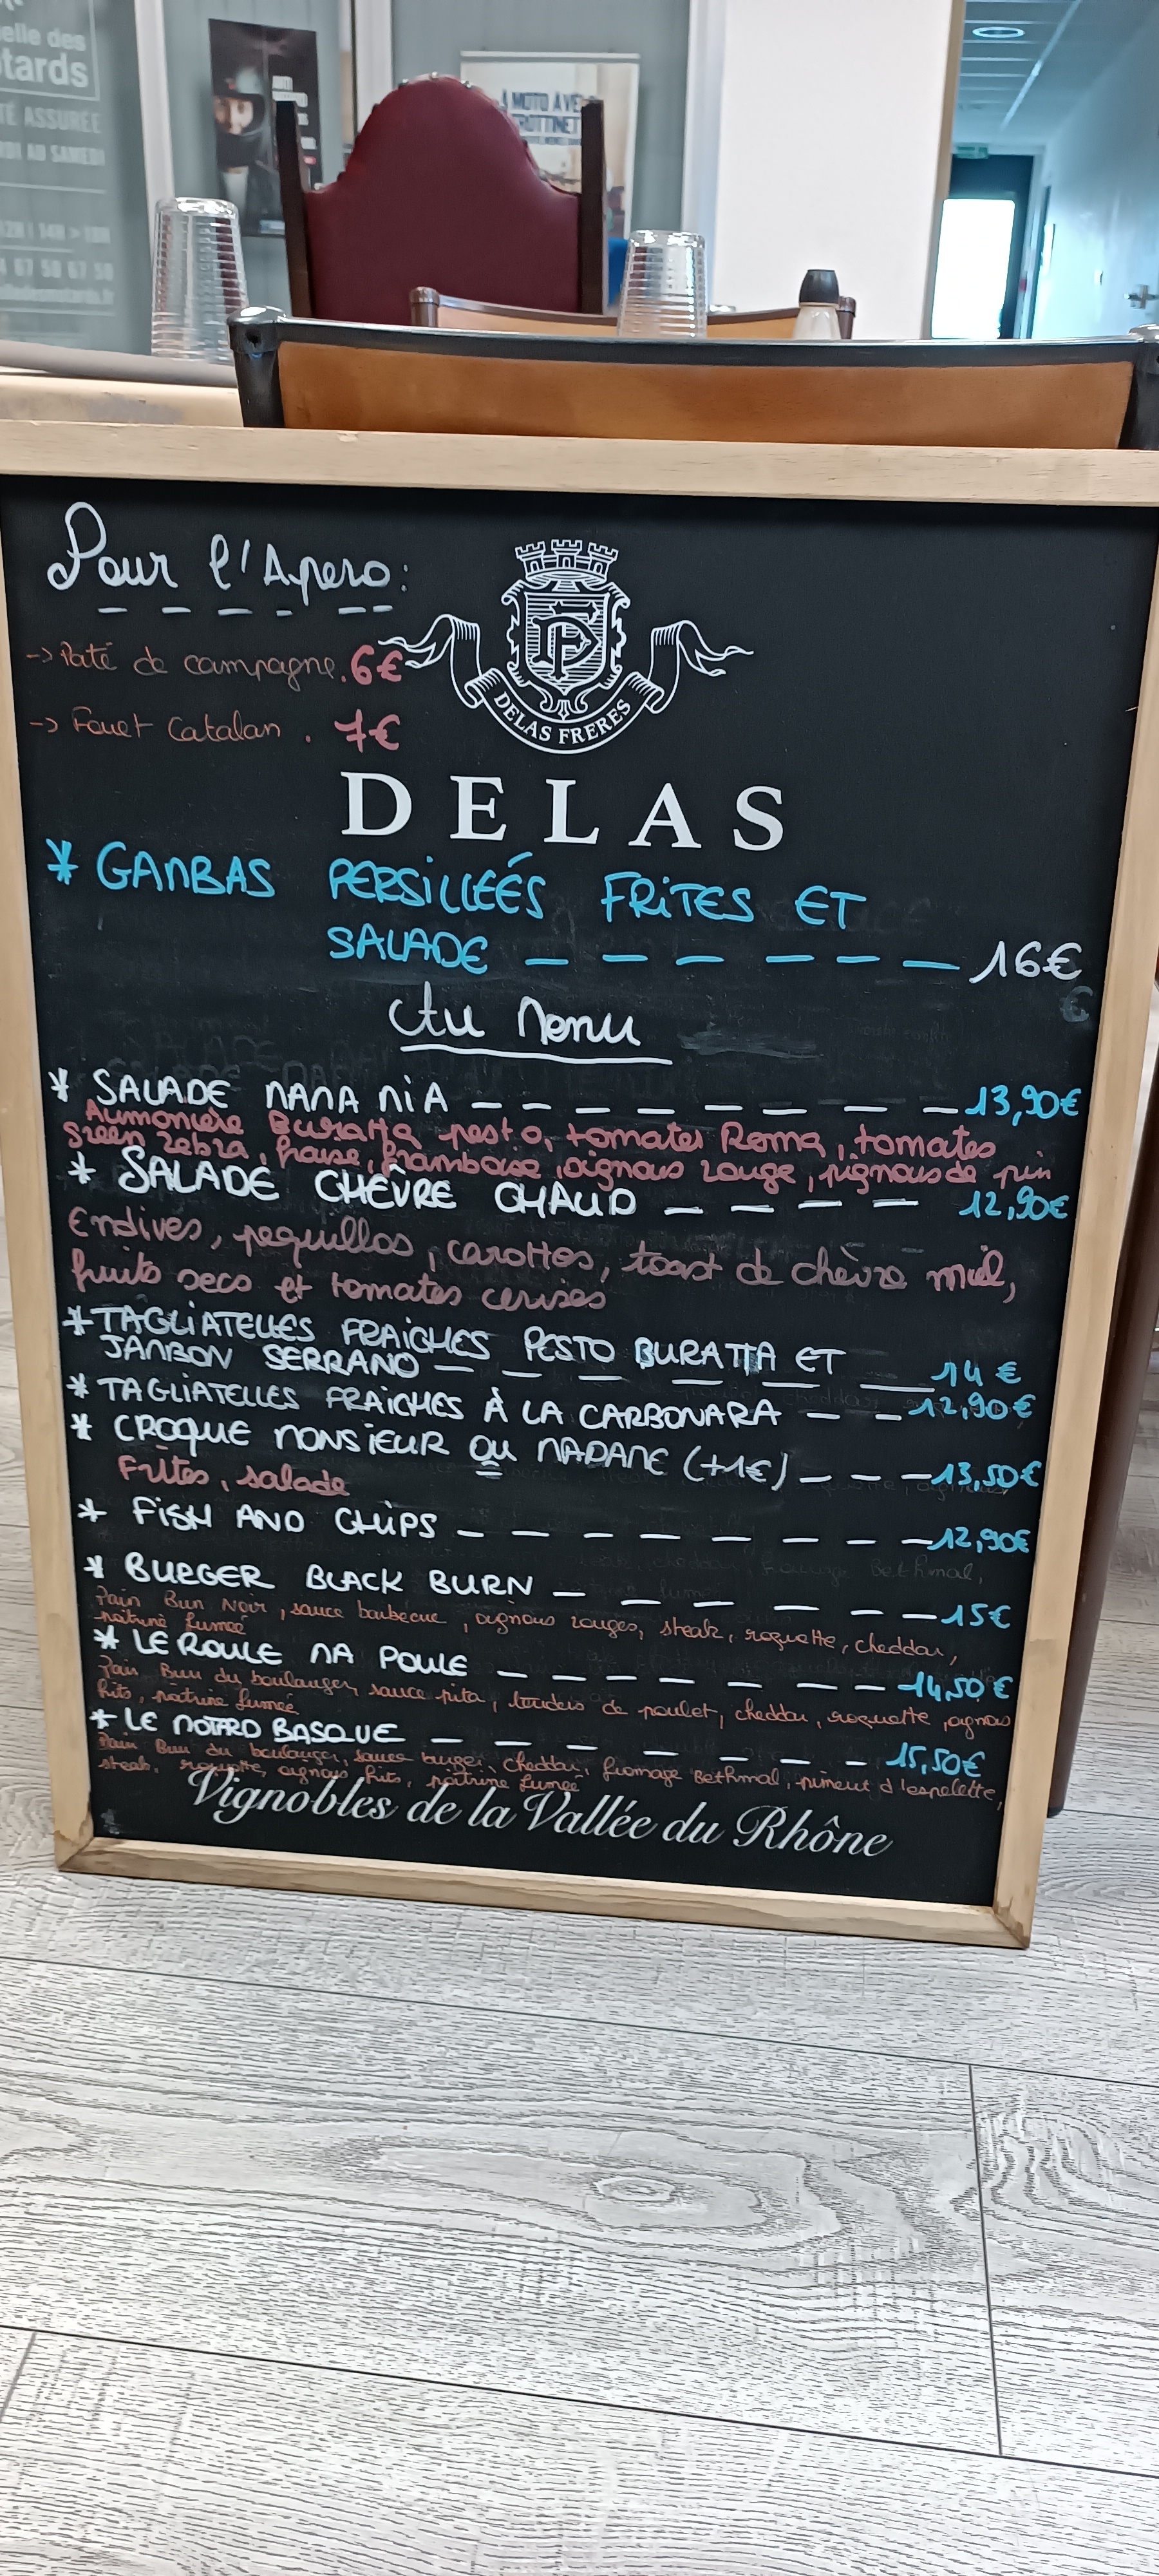 elle des
tards
TÉ ASSURÉE
RDI AU SAMEDI
12H | 14H > 18H
4 67 58 67 58
ANTI
A MOTO AVE
ROTTINET
Pour l'Apero:
-> Paté de campagne. 6€
-> Fouet Catalan . 7€
DELAS FRERES
DELAS
* GAMBAS PERSILLÉÉS FRITES ET
SALADE — — — — — — 16€
€
Au Menu
* SALADE MAMA MIA — — — — — — — — — 13,90€
Aumonière Buratta pesto, tomates Roma, tomates
green zebra, fraise, framboise, oignons rouge, pignons de pin
* SALADE CHÈVRE CHAUD — — — — 12,90€
Endives, pequillos, carottes, toast de chèvre miel,
fruits secs et tomates cerises
* TAGLIATELLES FRAICHES PESTO BURATTA ET
JAMBON SERRANO — — — — — — 14€
* TAGLIATELLES FRAICHES À LA CARBONARA — — 12,90€
* CROQUE MONSIEUR OU MADAME (+1€) — — — 13,50€
Frites, salade
* FISH AND CHIPS — — — — — — — — — 12,90€
* BURGER BLACK BURN — — — — — — 15€
Pain Bun Noir, sauce barbecue, oignons rouges, steak, roquette, cheddar,
poitrine fumée
* LE ROULE MA POULE — — — — — — — — 14,50€
Pain Bun du boulanger, sauce pita, tenders de poulet, cheddar, roquette, oignons
frits, poitrine fumée
* LE MOTARD BASQUE — — — — — — — 15,50€
Pain Bun du boulanger, sauce burger, cheddar, fromage Bethmal, piment d'espelette,
steak, roquette, oignons frits, poitrine fumée
Vignobles de la Vallée du Rhône